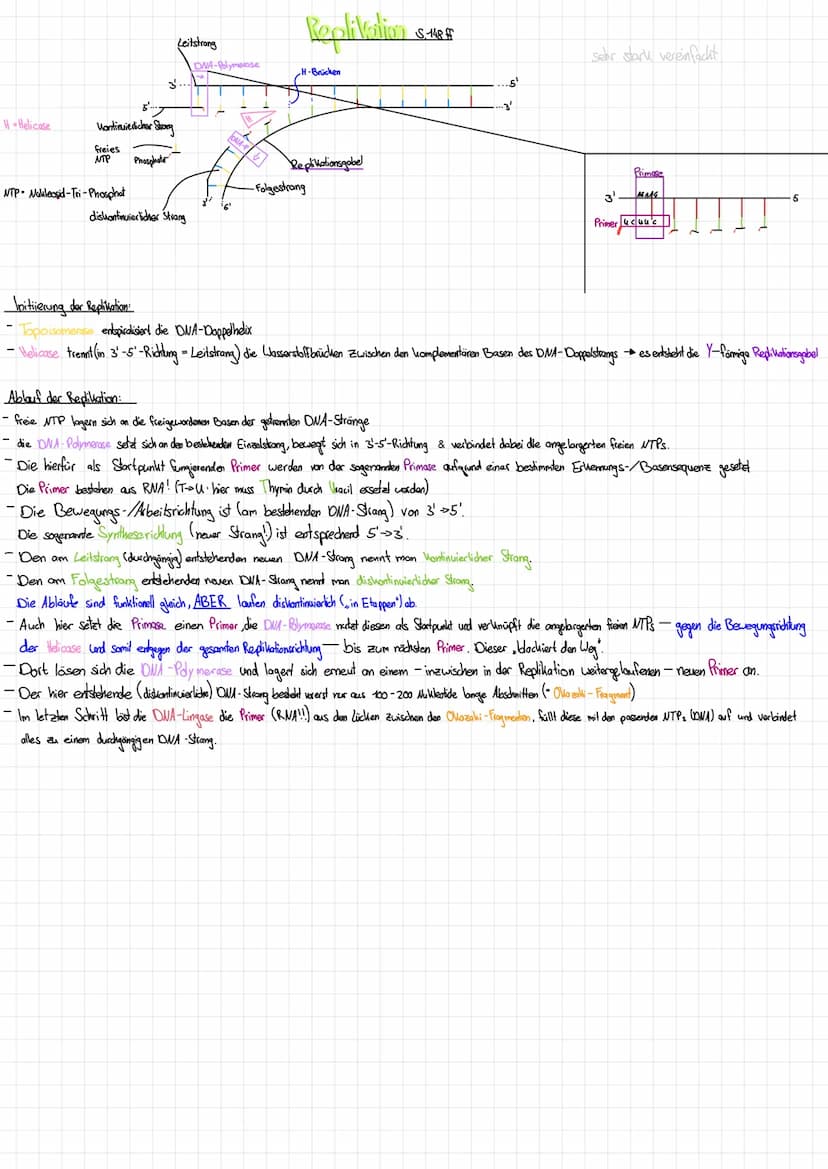 Replikation S.148 ff
sehr stark vereinfacht
Leitstrang
DNA-Polymerase
H-Brücken
3'
5'
5'
3'
H = Helicase
H
Kontinuierlicher Strang
freies NTP
Phosphate
DNA-P
Replikationsgabel
NTP = Nukleosid-Tri-Phosphat
Folgestrang
3' 5'
diskontinuierlicher Strang
Primase
3'
5
Primer
Initiierung der Replikation:
- Topoisomerase entspiralisiert die DNA-Doppelhelix
- Helicase trennt (in 3'-5'-Richtung = Leitstrang) die Wasserstoffbrücken zwischen den komplementären Basen des DNA-Doppelstrangs → es entsteht die Y-förmige Replikationsgabel
Ablauf der Replikation:
- freie NTP lagern sich an die freigewordenen Basen der getrennten DNA-Stränge
- die DNA-Polymerase setzt sich an den bestehenden Einzelstrang, bewegt sich in 3'-5'-Richtung & verbindet dabei die angelargerten freien NTPs.
- Die hierfür als Startpunkt fungierenden Primer werden von der sogenannten Primase aufgrund einer bestimmten Erkennungs-/Basensequenz gesetzt
Die Primer bestehen aus RNA! (T→U: hier muss Thymin durch Uracil ersetzt werden)
- Die Bewegungs-/Arbeitsrichtung ist (am bestehenden DNA-Strang) von 3'→5'.
Die sogenannte Syntheserichtung (neuer Strang!) ist entsprechend 5'→3'.
- Den am Leitstrang (durchgängig) entstehenden neuen DNA-Strang nennt man kontinuierlicher Strang.
- Den am Folgestrang entstehenden neuen DNA-Strang nennt man diskontinuierlicher Strang.
Die Abläufe sind funktionell gleich, ABER laufen diskontinuierlich („in Etappen") ab.
- Auch hier setzt die Primase einen Primer, die DNA-Polymerase nutzt diesen als Startpunkt und verknüpft die angelargerten freien NTPs — gegen die Bewegungsrichtung
der Helicase und somit entgegen der gesamten Replikationsrichtung — bis zum nächsten Primer. Dieser „blockiert den Weg".
- Dort lösen sich die DNA-Polymerase und lagert sich erneut an einem - inzwischen in der Replikation weitergelaufenen - neuen Primer an.
- Der hier entstehende (diskontinuierliche) DNA-Strang besteht zuerst nur aus 100-200 Nukleotide lange Abschnitten (= Okazaki-Fragment)
- Im letzten Schritt löst die DNA-Lingase die Primer (RNA!!) aus den Lücken zwischen den Okazaki-Fragmenten, füllt diese mit den passenden NTPs (DNA) auf und verbindet
alles zu einem durchgängigen DNA-Strang.